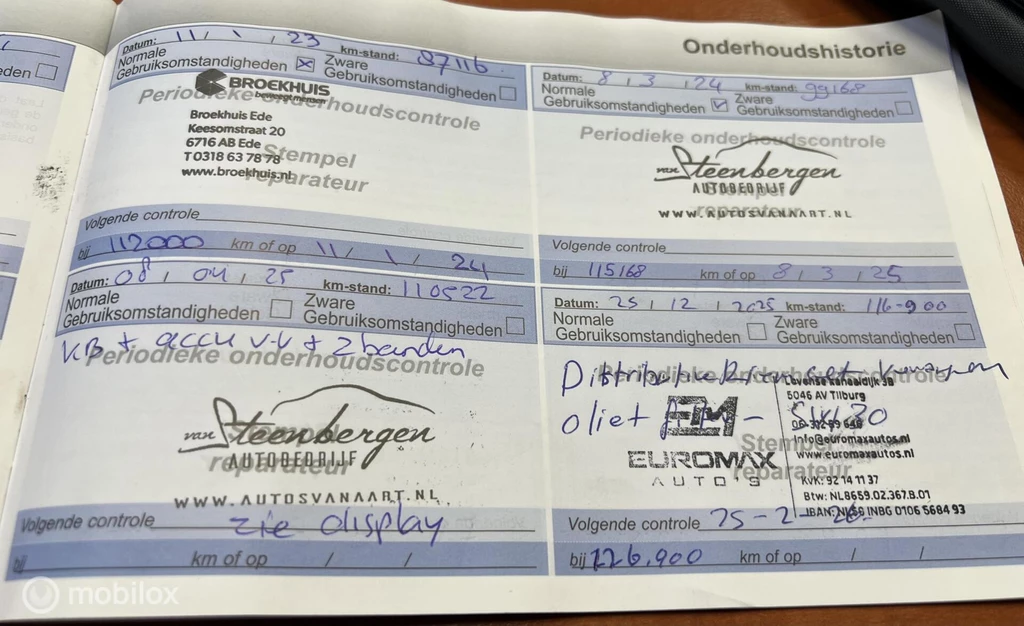 Onderhoudshistorie
Datum: 11 / 1 / 23 km-stand: 87116
Normale Gebruiksomstandigheden ☒ Zware Gebruiksomstandigheden ☐
BROEKHUIS
Periodieke onderhoudscontrole
Broekhuis Ede
Keesomstraat 20
6716 AB Ede
T 0318 63 78 78
www.broekhuis.nl
Stempel
reparateur
Volgende controle
bij 112000 km of op 11 / 1 / 24
Datum: 8 / 3 / 24 km-stand: 99168
Normale Gebruiksomstandigheden ☑ Zware Gebruiksomstandigheden ☐
Periodieke onderhoudscontrole
van Steenbergen
AUTOBEDRIJF
reparateur
WWW.AUTOSVANAART.NL
Volgende controle
bij 115168 km of op 8 / 3 / 25
Datum: 08 / 04 / 25 km-stand: 110522
Normale Gebruiksomstandigheden ☐ Zware Gebruiksomstandigheden ☐
KB + accu v.v + 2 banden
Periodieke onderhoudscontrole
van Steenbergen
AUTOBEDRIJF
reparateur
WWW.AUTOSVANAART.NL
Volgende controle zie display
bij km of op / /
Datum: 25 / 12 / 2025 km-stand: 116-900
Normale Gebruiksomstandigheden ☐ Zware Gebruiksomstandigheden ☐
Periodieke onderhoudscontrole
5046 AV Tilburg
oliet
EM
Stempel
EUROMAX
AUTO'S
reparateur
info@euromaxautos.nl
www.euromaxautos.nl
KVK: 92 14 11 37
Btw: NL8659.02.367.B.01
INBG 0106 5684 93
Volgende controle 25-2-26
bij 126.900 km of op / /
mobilox